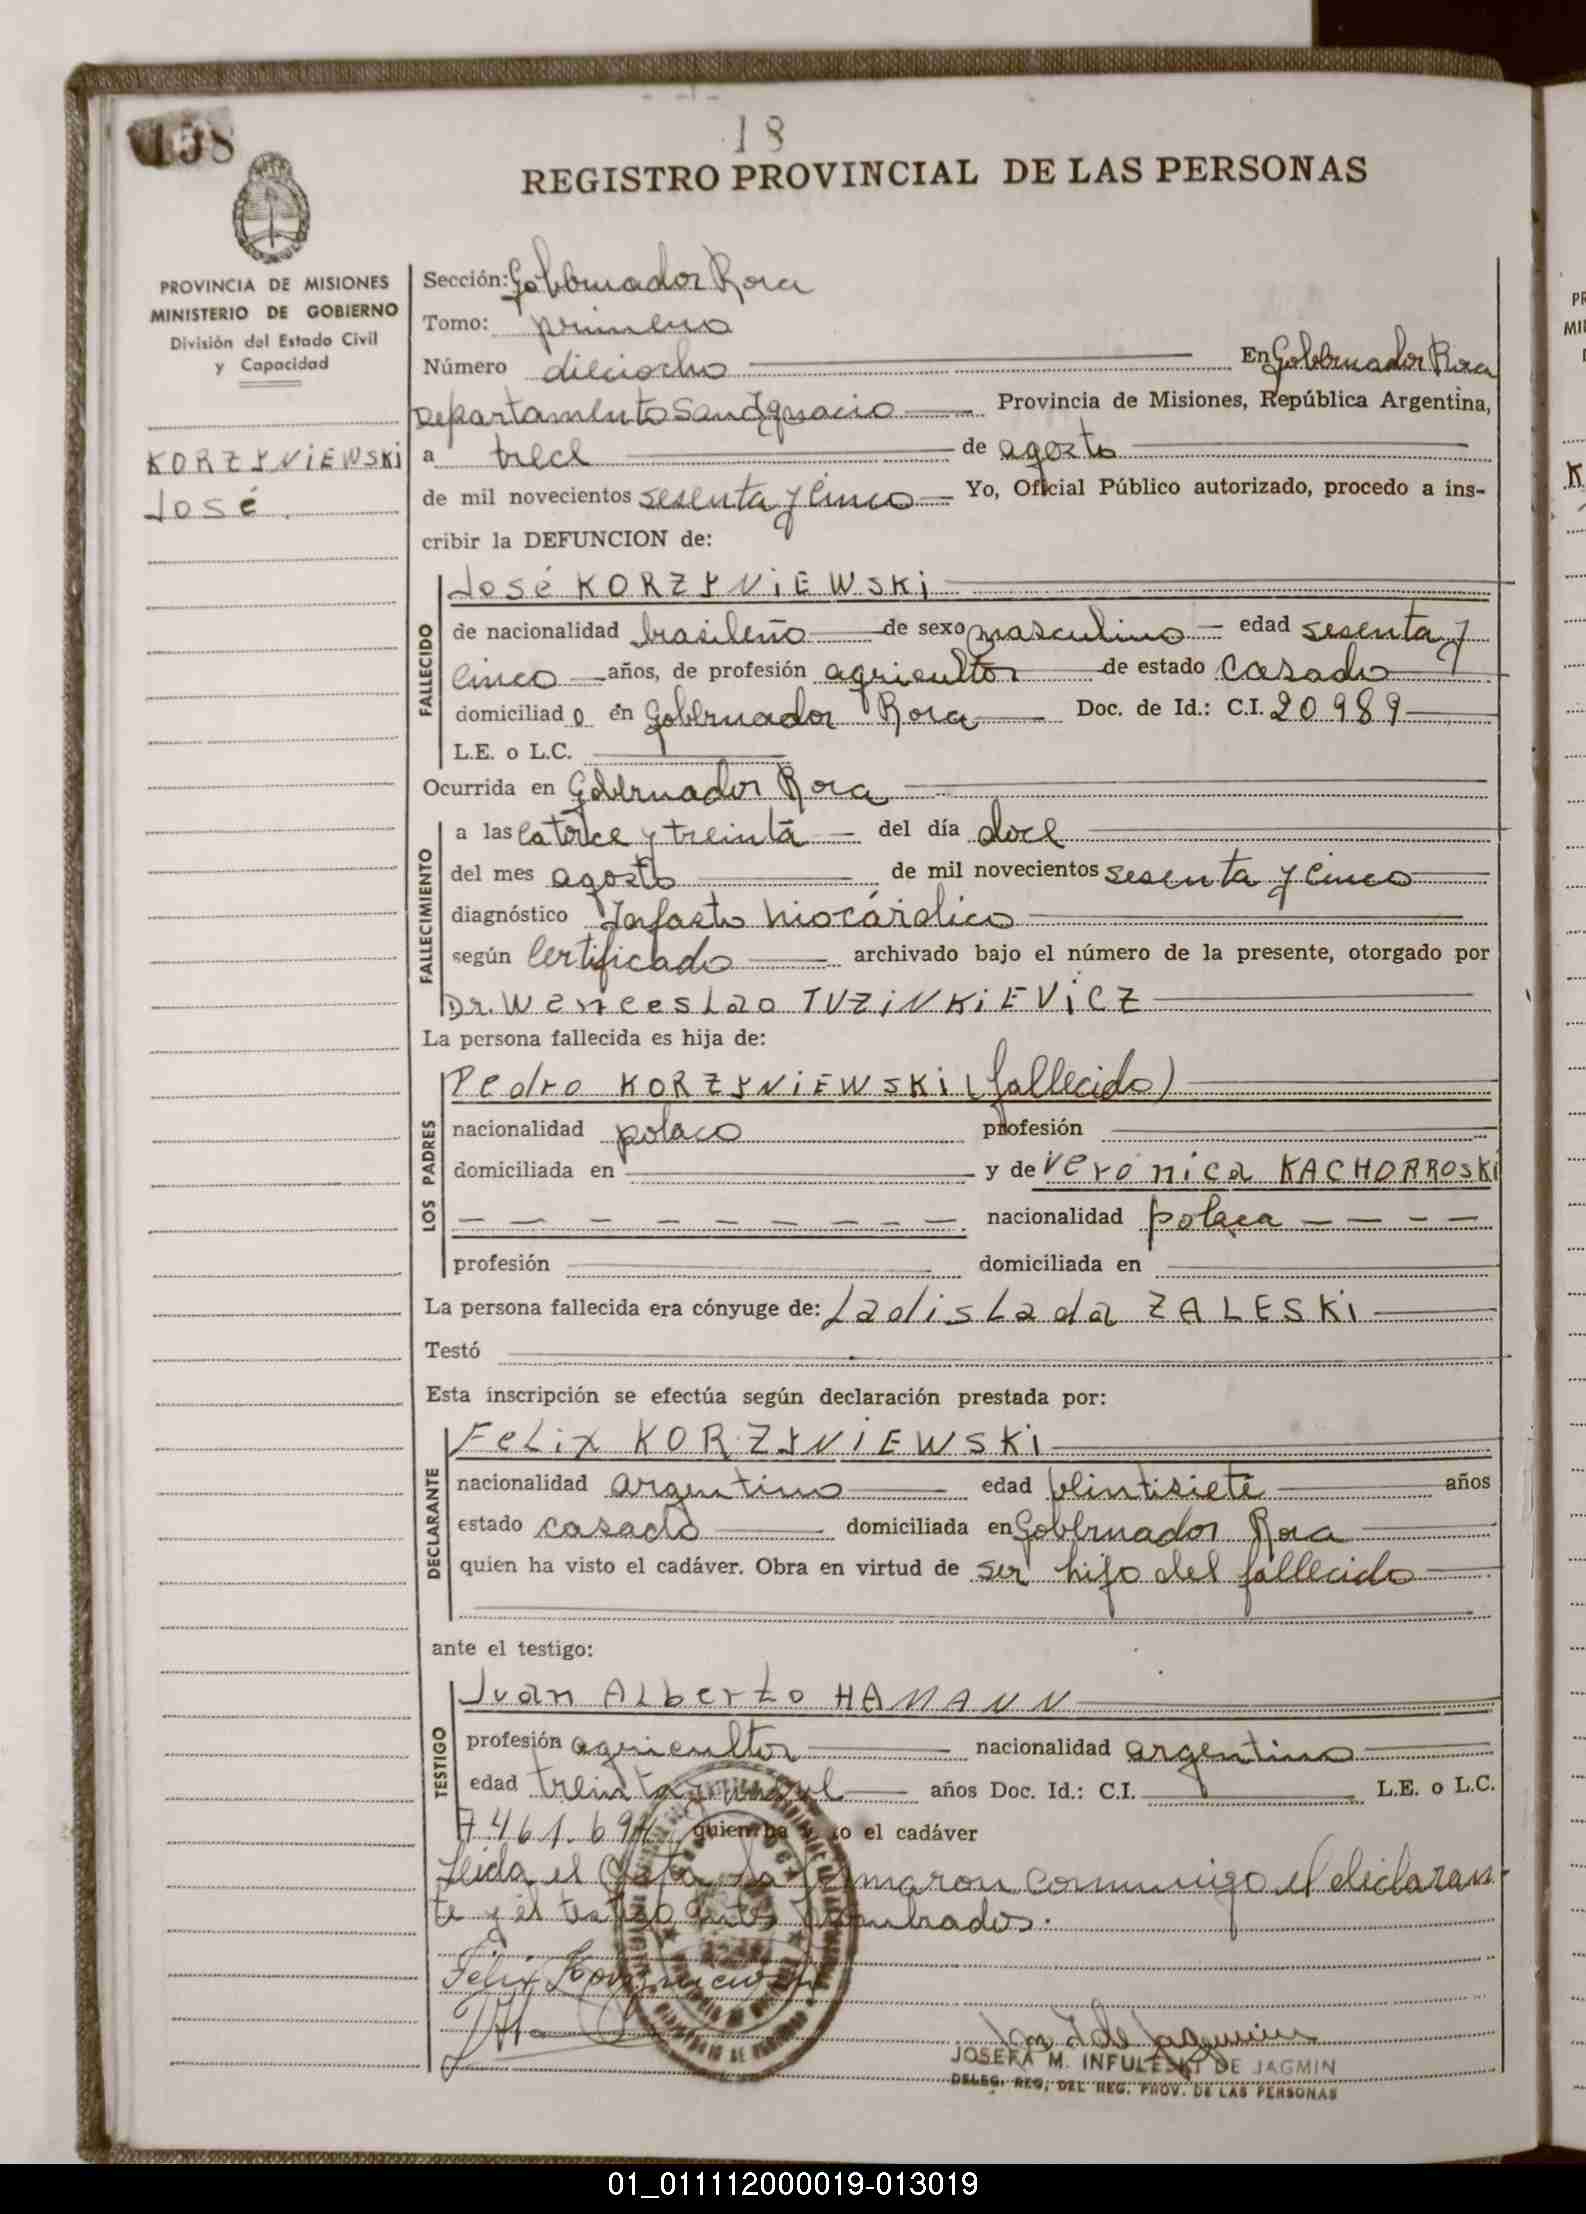 158
18
REGISTRO PROVINCIAL DE LAS PERSONAS
PROVINCIA DE MISIONES
MINISTERIO DE GOBIERNO
División del Estado Civil
y Capacidad
KORZYNIEWSKI
José.
Sección: Gobernador Roca
Tomo: primero
Número dieciocho En Gobernador Roca
Departamento San Ignacio Provincia de Misiones, República Argentina,
a trece de agosto
de mil novecientos sesenta y cinco Yo, Oficial Público autorizado, procedo a ins-
cribir la DEFUNCION de:
FALLECIDO
José KORZYNIEWSKI
de nacionalidad brasileño de sexo masculino edad sesenta y
cinco años, de profesión agricultor de estado casado
domiciliado en Gobernador Roca Doc. de Id.: C.I. 20989
L.E. o L.C.
Ocurrida en Gobernador Roca
FALLECIMIENTO
a las catorce y treinta del día doce
del mes agosto de mil novecientos sesenta y cinco
diagnóstico Infarto miocárdico
según certificado archivado bajo el número de la presente, otorgado por
Dr. Wenceslao TUZINKIEVICZ
La persona fallecida es hija de:
LOS PADRES
Pedro KORZYNIEWSKI (fallecido)
nacionalidad polaco profesión
domiciliada en y de Verónica KACHORROSKI
nacionalidad polaca
profesión domiciliada en
La persona fallecida era cónyuge de: Ladislada ZALESKI
Testó
Esta inscripción se efectúa según declaración prestada por:
DECLARANTE
Felix KORZYNIEWSKI
nacionalidad argentino edad veintisiete años
estado casado domiciliada en Gobernador Roca
quien ha visto el cadáver. Obra en virtud de ser hijo del fallecido
ante el testigo:
TESTIGO
Juan Alberto HAMANN
profesión agricultor nacionalidad argentino
edad treinta y nueve años Doc. Id.: C.I. L.E. o L.C.
7.461.69 quien ha visto el cadáver
Leida el Acta la firmaron conmigo el declaran-
te y el testigo antes nombrados.
Felix Korzyniewski
JOSEFA M. INFULESKI DE JAGMIN
DELEG. REG. DEL REG. PROV. DE LAS PERSONAS
01_011112000019-013019